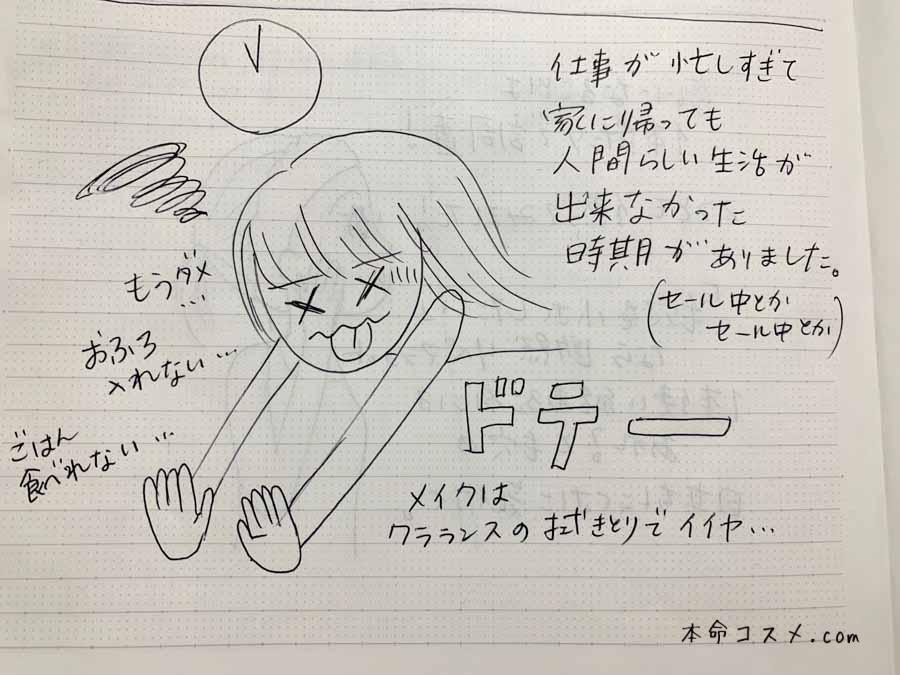 仕事が忙しすぎて
家に帰っても
人間らしい生活が
出来なかった
時期がありました。
(セール中とか
セール中とか)
もうダメ
…
おふろ
入れない…
ごはん
食べれない…
ドテー
メイクは
クラランスのまゆきとりでイイヤ…
本命コスメ.com